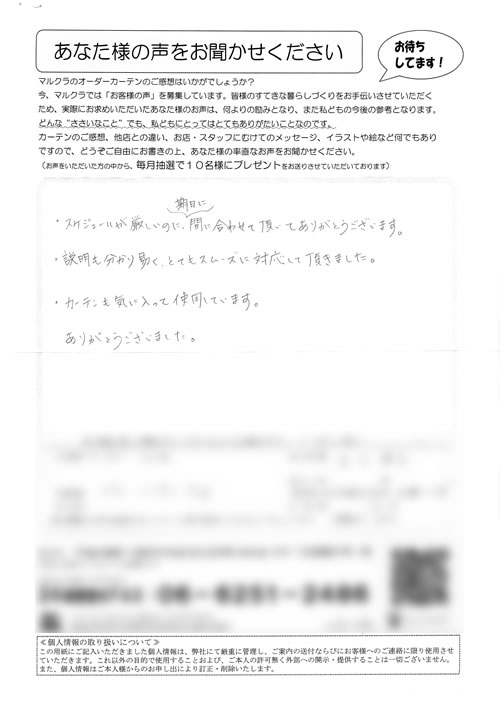 あなた様の声をお聞かせください
お待ち
してます！
マルクラのオーダーカーテンのご感想はいかがでしょうか？
今、マルクラでは「お客様の声」を募集しています。皆様のすてきな暮らしづくりをお手伝いさせていただく
ため、実際にお求めいただいたあなた様のお声は、何よりの励みとなり、また私どもの今後の参考となります。
どんな“ささいなこと”でも、私どもにとってはとてもありがたいことなのです。
カーテンのご感想、他店との違い、お店・スタッフにむけてのメッセージ、イラストや絵など何でもあり
ですので、どうぞご自由にお書きの上、あなた様の率直なお声をお聞かせください。
（お声をいただいた方の中から、毎月抽選で１０名様にプレゼントをお送りさせていただいております）
期日に
・スケジュールが厳しいのに、間に合わせて頂いてありがとうございます。
・説明も分かり易く、とてもスムーズに対応して頂きました。
・カーテンも気に入って使用しています。
ありがとうございました。
06-6251-2486
≪個人情報の取り扱いについて≫
この用紙にご記入いただきました個人情報は、弊社にて厳重に管理し、ご案内の送付ならびにお客様へのご連絡に限り使用させ
ていただきます。これ以外の目的で使用することおよび、ご本人の許可無く外部への開示・提供することは一切ございません。
また、個人情報はご本人様からのお申し出により訂正・削除いたします。